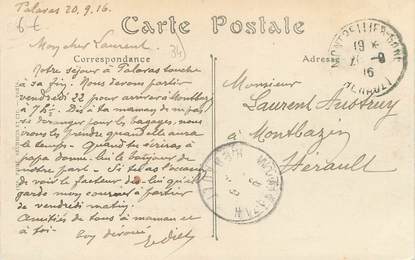 Palavas 20.9.16.
Carte Postale
Mon cher Laurent
34
Correspondance
Adresse
Notre séjour à Palavas touche
à sa fin. Nous devons partir
vendredi 22 pour arriver à Montbazin
à 7h. Dis à ta maman de ne pas
se déranger pour les bagages, nous
irons les prendre quand elle aura
le temps. Quand tu écriras à
papa donne lui le bonjour de
notre part. Si tu as l'occasion
de voir le facteur dis-lui qu'il
garde mon courrier à partir
de vendredi matin.
Amitiés de tous à maman et
à toi.
ton dévoué
Monsieur
Laurent
à Montbazin
Hérault
MONTPELLIER-GARE
19
21 - 9
16
HERAULT
MONTBAZIN